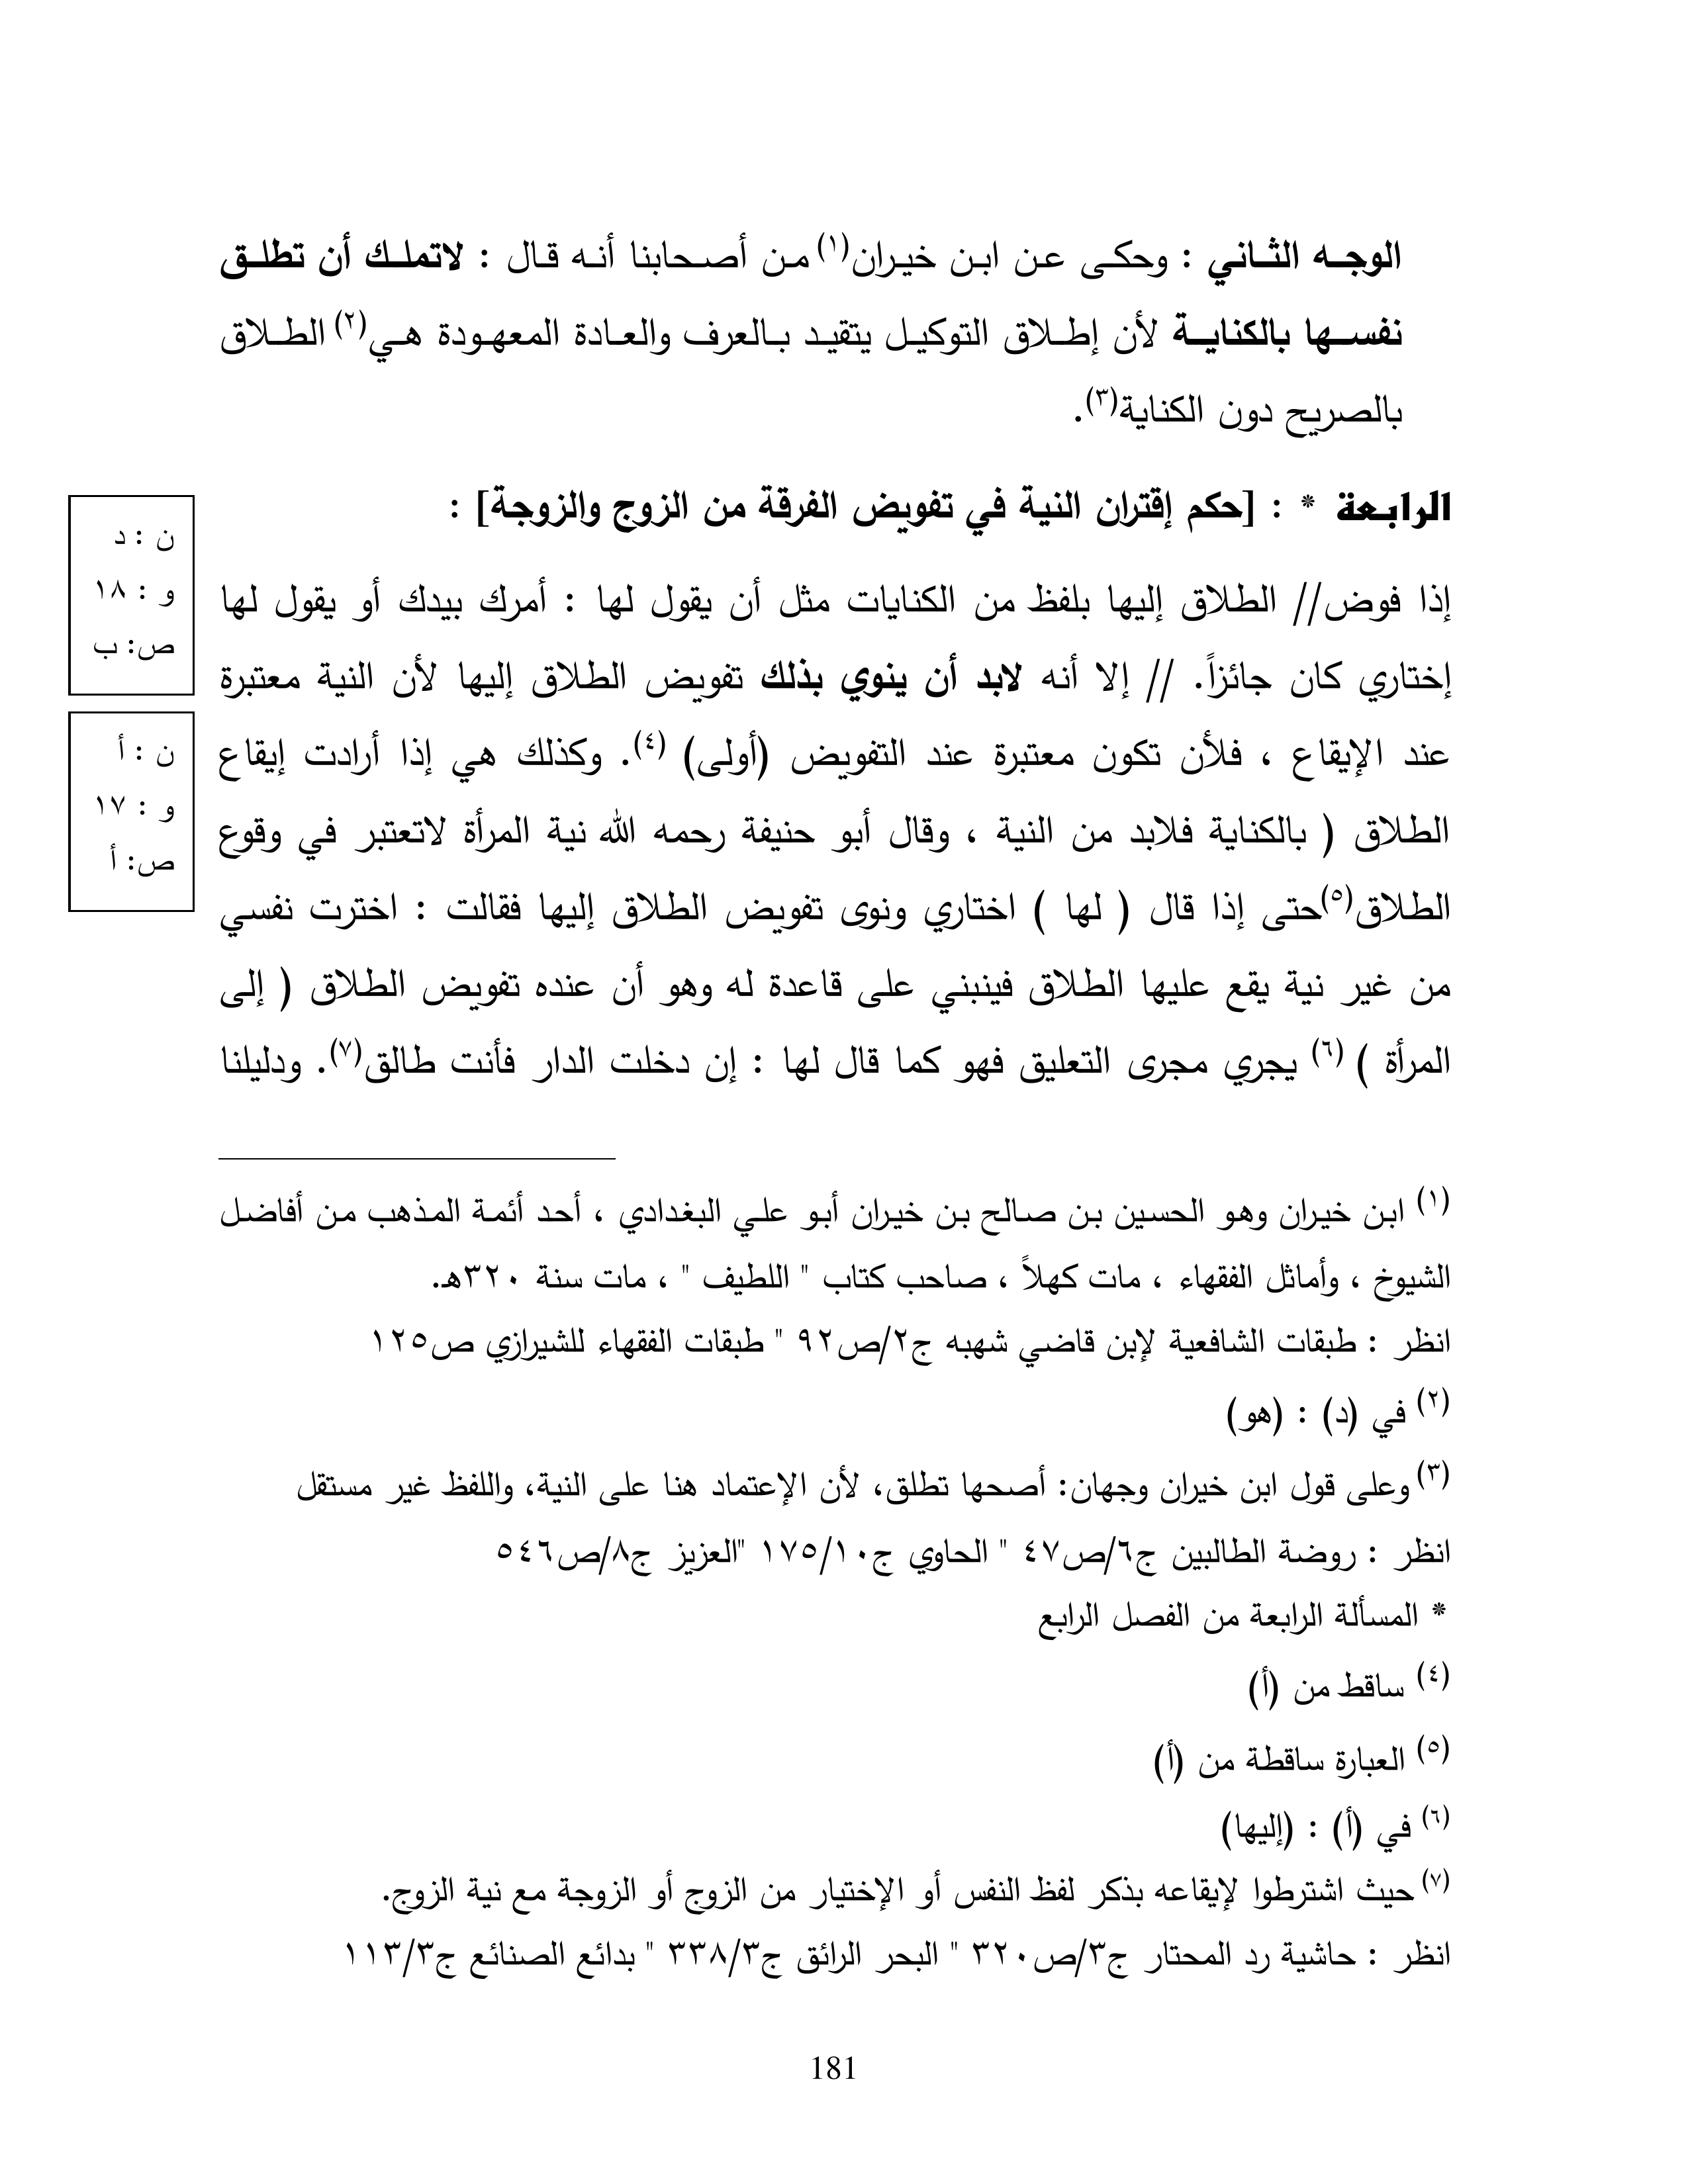 الوجه الثاني : وحكى عن ابن خيران(١) من أصحابنا أنه قال : لاتملك أن تطلق
نفسها بالكناية لأن إطلاق التوكيل يتقيد بالعرف والعادة المعهودة هي(٢) الطلاق
بالصريح دون الكناية(٣).
الرابعة * : [حكم إقتران النية في تفويض الفرقة من الزوج والزوجة] :
ن : د
و : ١٨
ص: ب
ن : أ
و : ١٧
ص: أ
إذا فوض// الطلاق إليها بلفظ من الكنايات مثل أن يقول لها : أمرك بيدك أو يقول لها
إختاري كان جائزاً. // إلا أنه لابد أن ينوي بذلك تفويض الطلاق إليها لأن النية معتبرة
عند الإيقاع ، فلأن تكون معتبرة عند التفويض (أولى) (٤). وكذلك هي إذا أرادت إيقاع
الطلاق ( بالكناية فلابد من النية ، وقال أبو حنيفة رحمه الله نية المرأة لاتعتبر في وقوع
الطلاق(٥)حتى إذا قال ( لها ) اختاري ونوى تفويض الطلاق إليها فقالت : اخترت نفسي
من غير نية يقع عليها الطلاق فينبني على قاعدة له وهو أن عنده تفويض الطلاق ( إلى
المرأة ) (٦) يجري مجرى التعليق فهو كما قال لها : إن دخلت الدار فأنت طالق(٧). ودليلنا
(١) ابن خيران وهو الحسين بن صالح بن خيران أبو علي البغدادي ، أحد أئمة المذهب من أفاضل
الشيوخ ، وأماثل الفقهاء ، مات كهلاً ، صاحب كتاب " اللطيف " ، مات سنة ٣٢٠هـ.
انظر : طبقات الشافعية لإبن قاضي شهبه ج٢/ص٩٢ " طبقات الفقهاء للشيرازي ص١٢٥
(٢) في (د) : (هو)
(٣) وعلى قول ابن خيران وجهان: أصحها تطلق، لأن الإعتماد هنا على النية، واللفظ غير مستقل
انظر : روضة الطالبين ج٦/ص٤٧ " الحاوي ج١٧٥/١٠ "العزيز ج٨/ص٥٤٦
* المسألة الرابعة من الفصل الرابع
(٤) ساقط من (أ)
(٥) العبارة ساقطة من (أ)
(٦) في (أ) : (إليها)
(٧) حيث اشترطوا لإيقاعه بذكر لفظ النفس أو الإختيار من الزوج أو الزوجة مع نية الزوج.
انظر : حاشية رد المحتار ج٣/ص٣٢٠ " البحر الرائق ج٣٣٨/٣ " بدائع الصنائع ج١١٣/٣
181